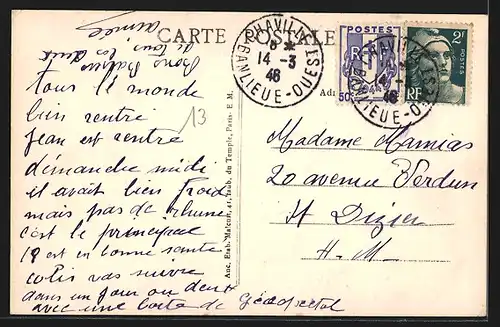 CARTE POSTALE
CHAVILLE
8 *
14 - 3
46
BANLIEUE-OUEST
POSTES
RF
50
2F
POSTES
RF
13
Anc. Etab. Malcuit, 41, faub. du Temple, Paris - E. M.
Adr
tous le monde
bien rentré
Jean est rentré
démanche midi
il avait bien froid
mais pas de rhume
c'est le principal
est en bonne santé
colis vas suivre
dans un jour ou deux
avec une boîte de
Bons Baisers
de tous les deux
Madame Mamias
20 avenue Verdun
St Dizier
H. M.